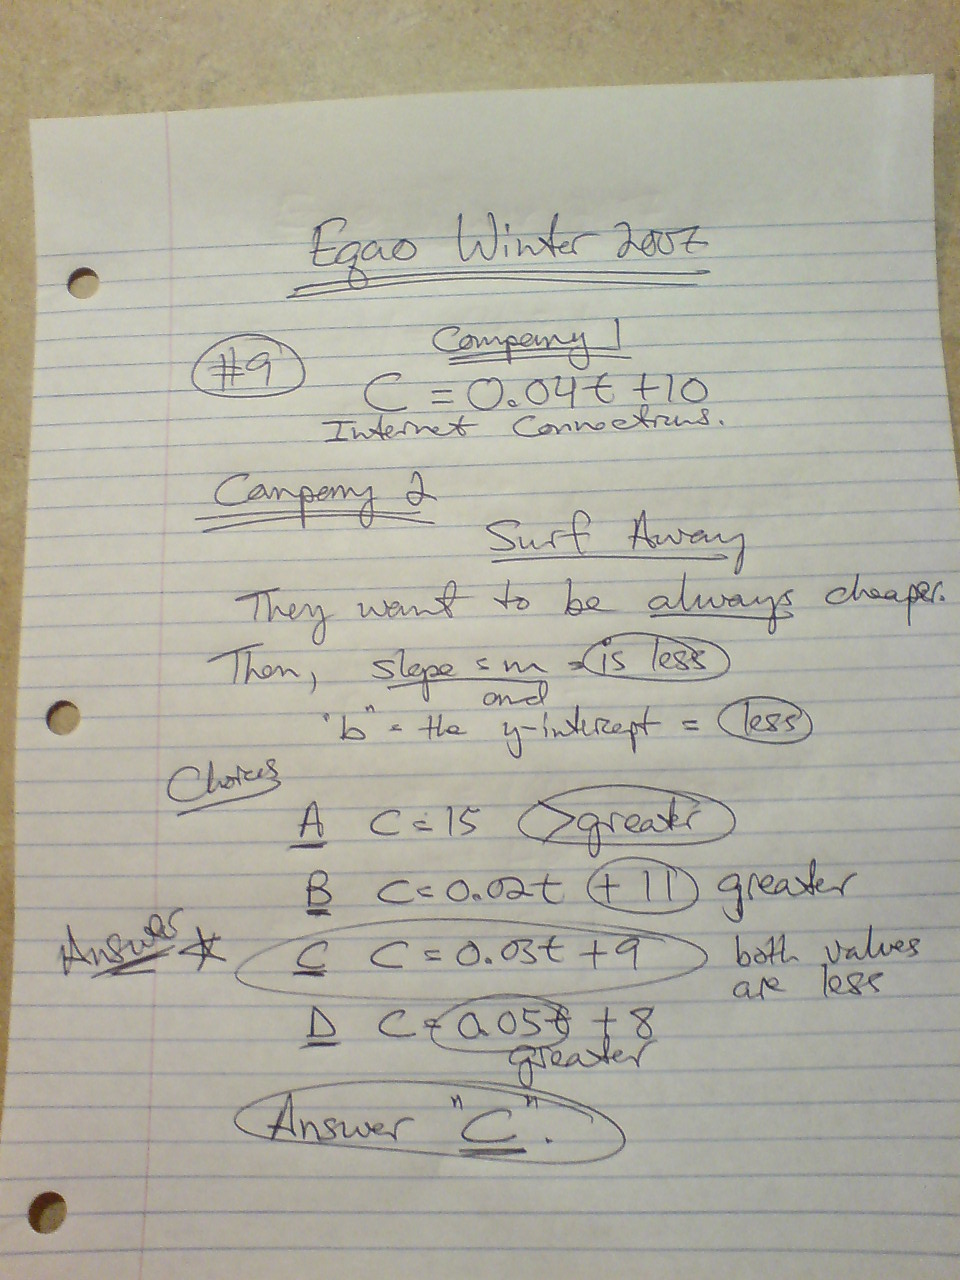 Eqao Winter 2007
#9
Company 1
C = 0.04t + 10
Internet Connections.
Company 2
Surf Away
They want to be always cheaper.
Then, slope = m = is less
and
"b" = the y-intercept = less
Choices
A C = 15 > greater
B C = 0.02t + 11 greater
Answer ☆ C C = 0.03t + 9 both values
are less
D C = 0.05t + 8
greater
Answer "C".